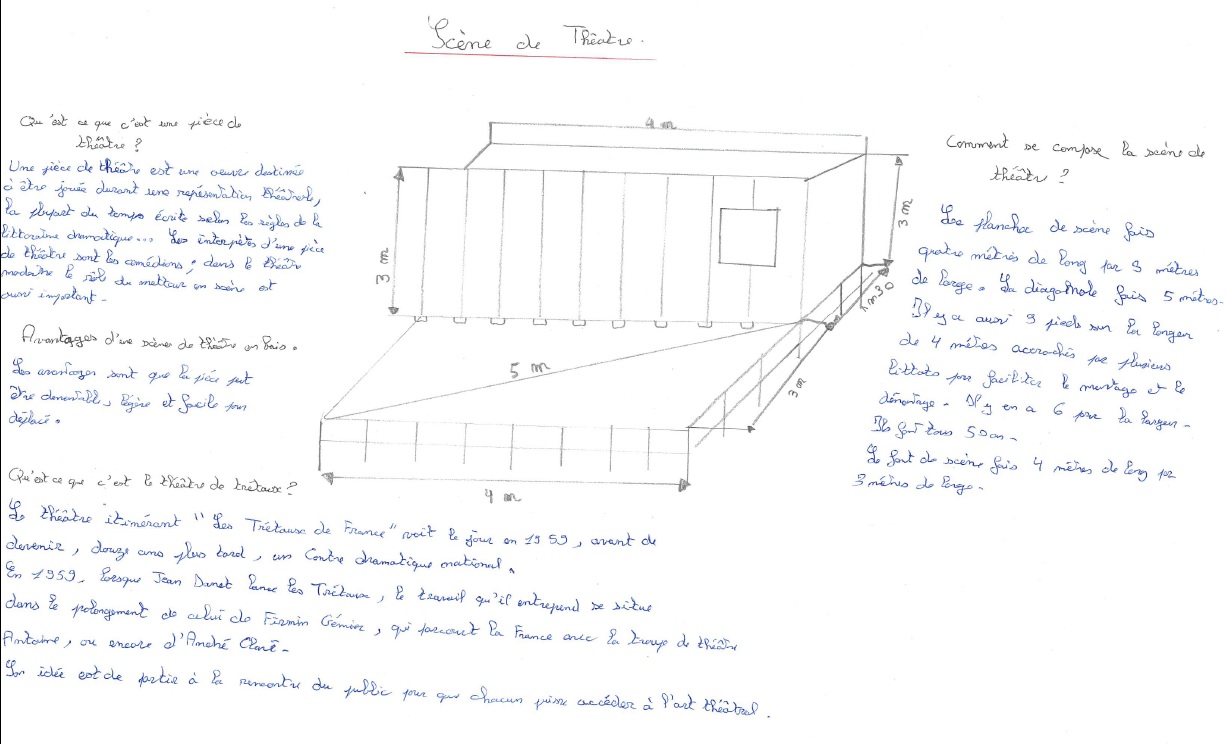 Scène de Théâtre.
Qu'est ce que c'est une pièce de
théâtre ?
Une pièce de théâtre est une oeuvre destinée
à être jouée durant une représentation théâtrale,
la plupart du temps écrite selon les règles de la
littérature dramatique... Les interprètes d'une pièce
de théâtre sont les comédiens ; dans le théâtre
moderne le rôle du metteur en scène est
aussi important.
Avantages d'une scène de théâtre en bois.
Les avantages sont que la pièce peut
être demontable, légère et facile pour
déplacé.
4 m
3 m
3 m
1m30
5 m
3 m
4 m
Comment se compose la scène de
théâtre ?
Les planches de scène fais
quatre mètres de long par 3 mètres
de large. La diagonale fais 5 mètres.
Il y a aussi 9 pieds sur la longeur
de 4 mètres accrochés par plusieurs
littots pour faciliter le montage et le
démontage. Il y en a 6 pour la largeur.
Ils font tous 50 cm.
Le font de scène fais 4 mètres de long par
3 mètres de large.
Qu'est ce que c'est le théâtre de tretaux ?
Le théâtre itinérant "Les Trétaux de France" voit le jour en 1959, avant de
devenir, douze ans plus tard, un Centre dramatique national.
En 1959, lorsque Jean Danet lance les Trétaux, le travail qu'il entrepend se situe
dans le polongement de celui de Firmin Gémier, qui parcourt la France avec la troupe de théâtre
Antoine, ou encore d'André Clavé.
Son idée est de partir à la rencontre du public pour que chacun puisse accéder à l'art théâtral.